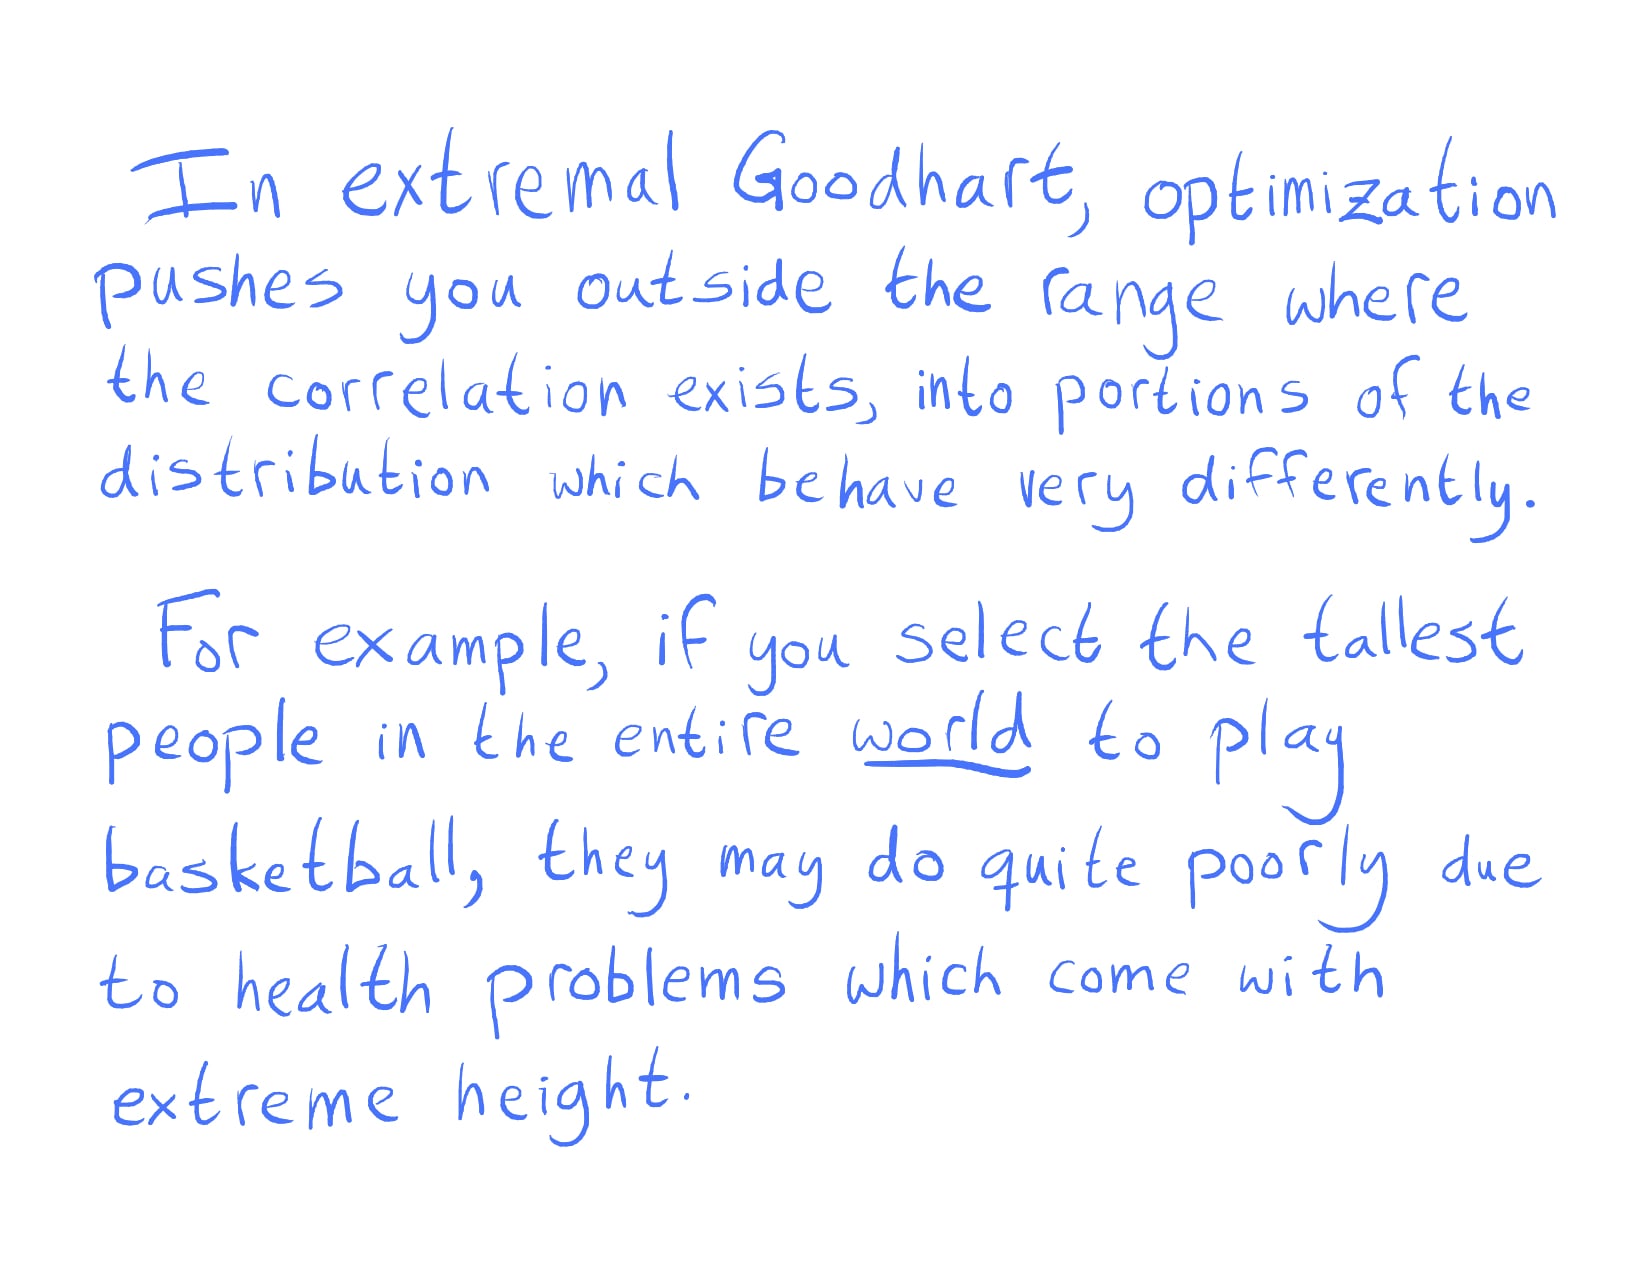 In extremal Goodhart, optimization
pushes you outside the range where
the correlation exists, into portions of the
distribution which behave very differently.
For example, if you select the tallest
people in the entire world to play
basketball, they may do quite poorly due
to health problems which come with
extreme height.